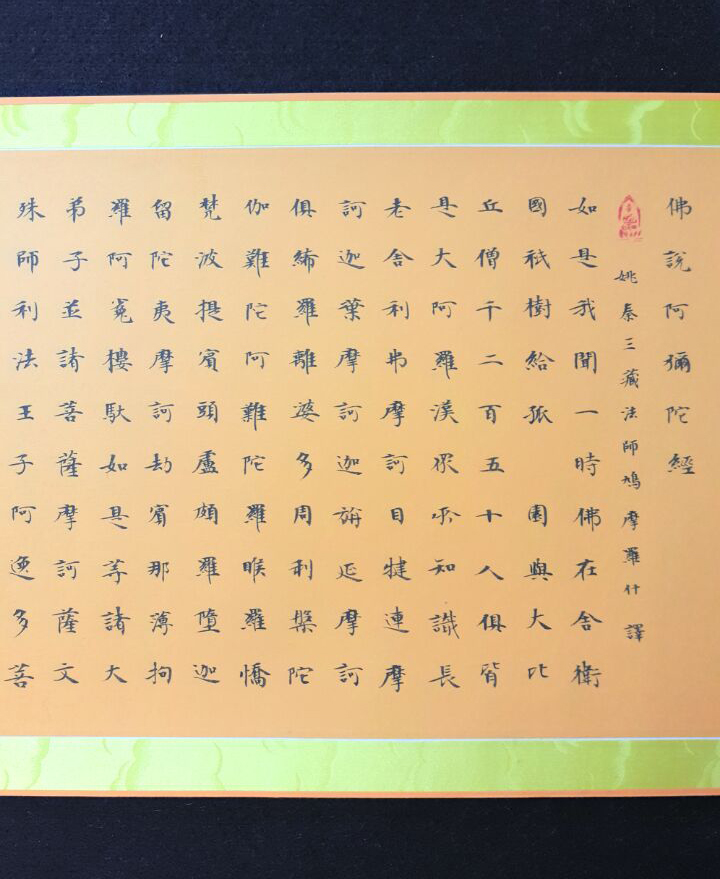 佛說阿彌陀經
姚秦三藏法師鳩摩羅什譯
如是我聞一時佛在舍衛
國祇樹給孤 園與大比
丘僧千二百五十人俱皆
是大阿羅漢眾所知識長
老舍利弗摩訶目犍連摩
訶迦葉摩訶迦旃延摩訶
俱絺羅離婆多周利槃陀
伽難陀阿難陀羅睺羅憍
梵波提賓頭盧頗羅墮迦
留陀夷摩訶劫賓那薄拘
羅阿㝹樓馱如是等諸大
弟子並諸菩薩摩訶薩文
殊師利法王子阿逸多菩